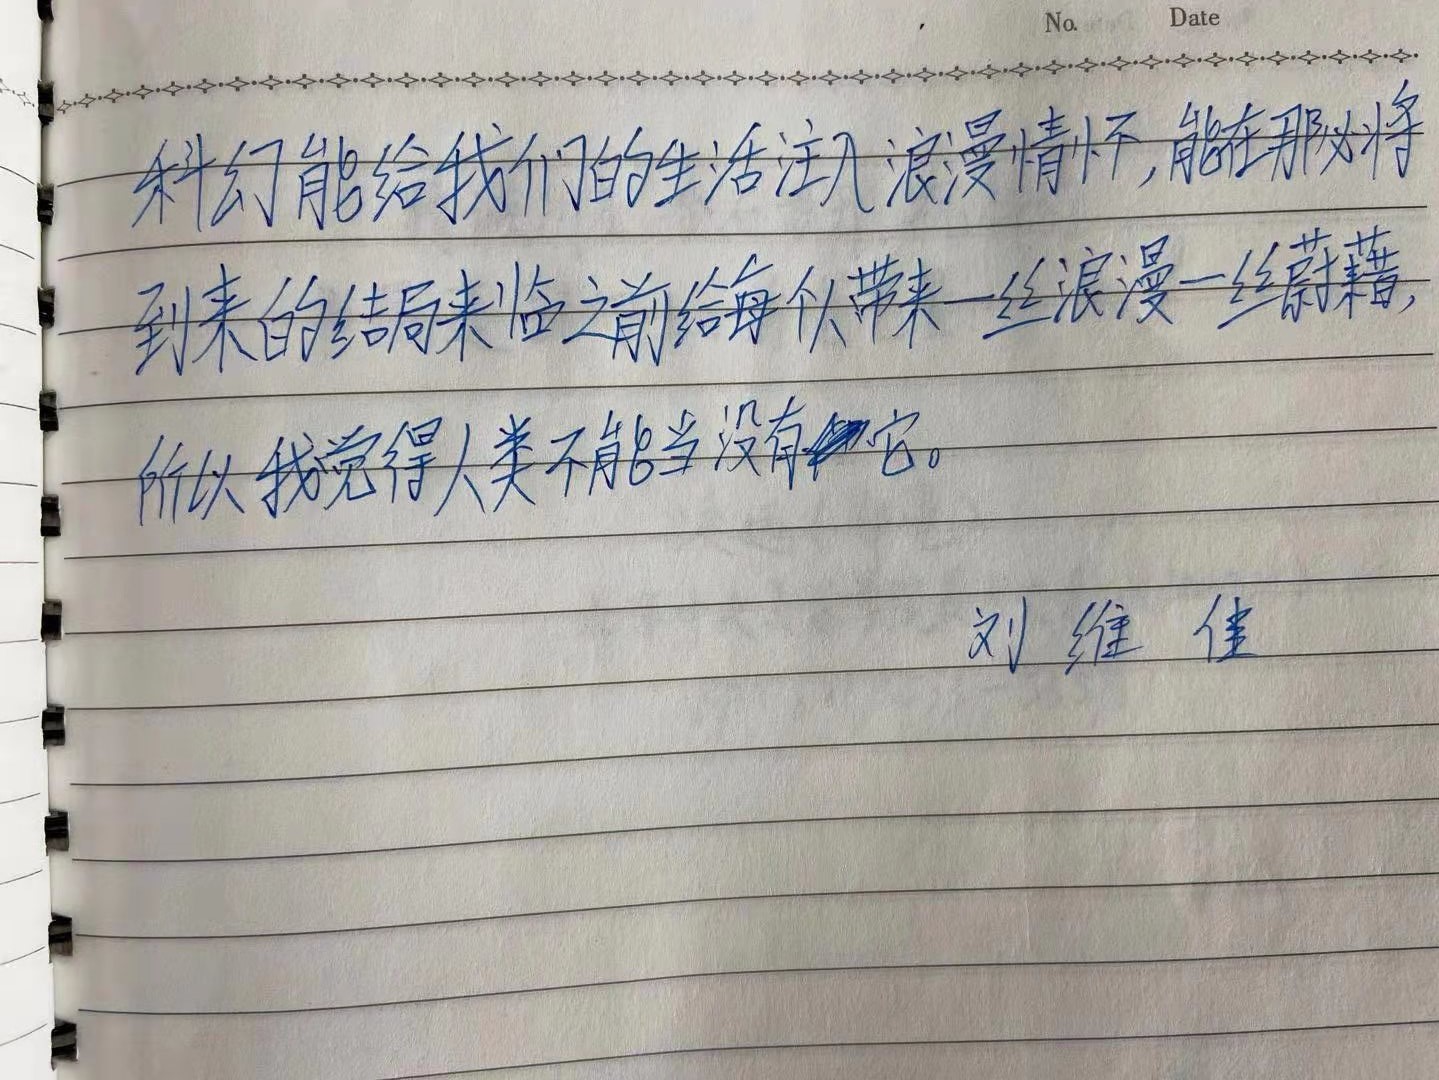 No. Date
科幻能给我们的生活注入浪漫情怀,能在那必将
到来的结局来临之前给每个人带来一丝浪漫一丝蔚藉,
所以我觉得人类不能当没有它。
刘维佳